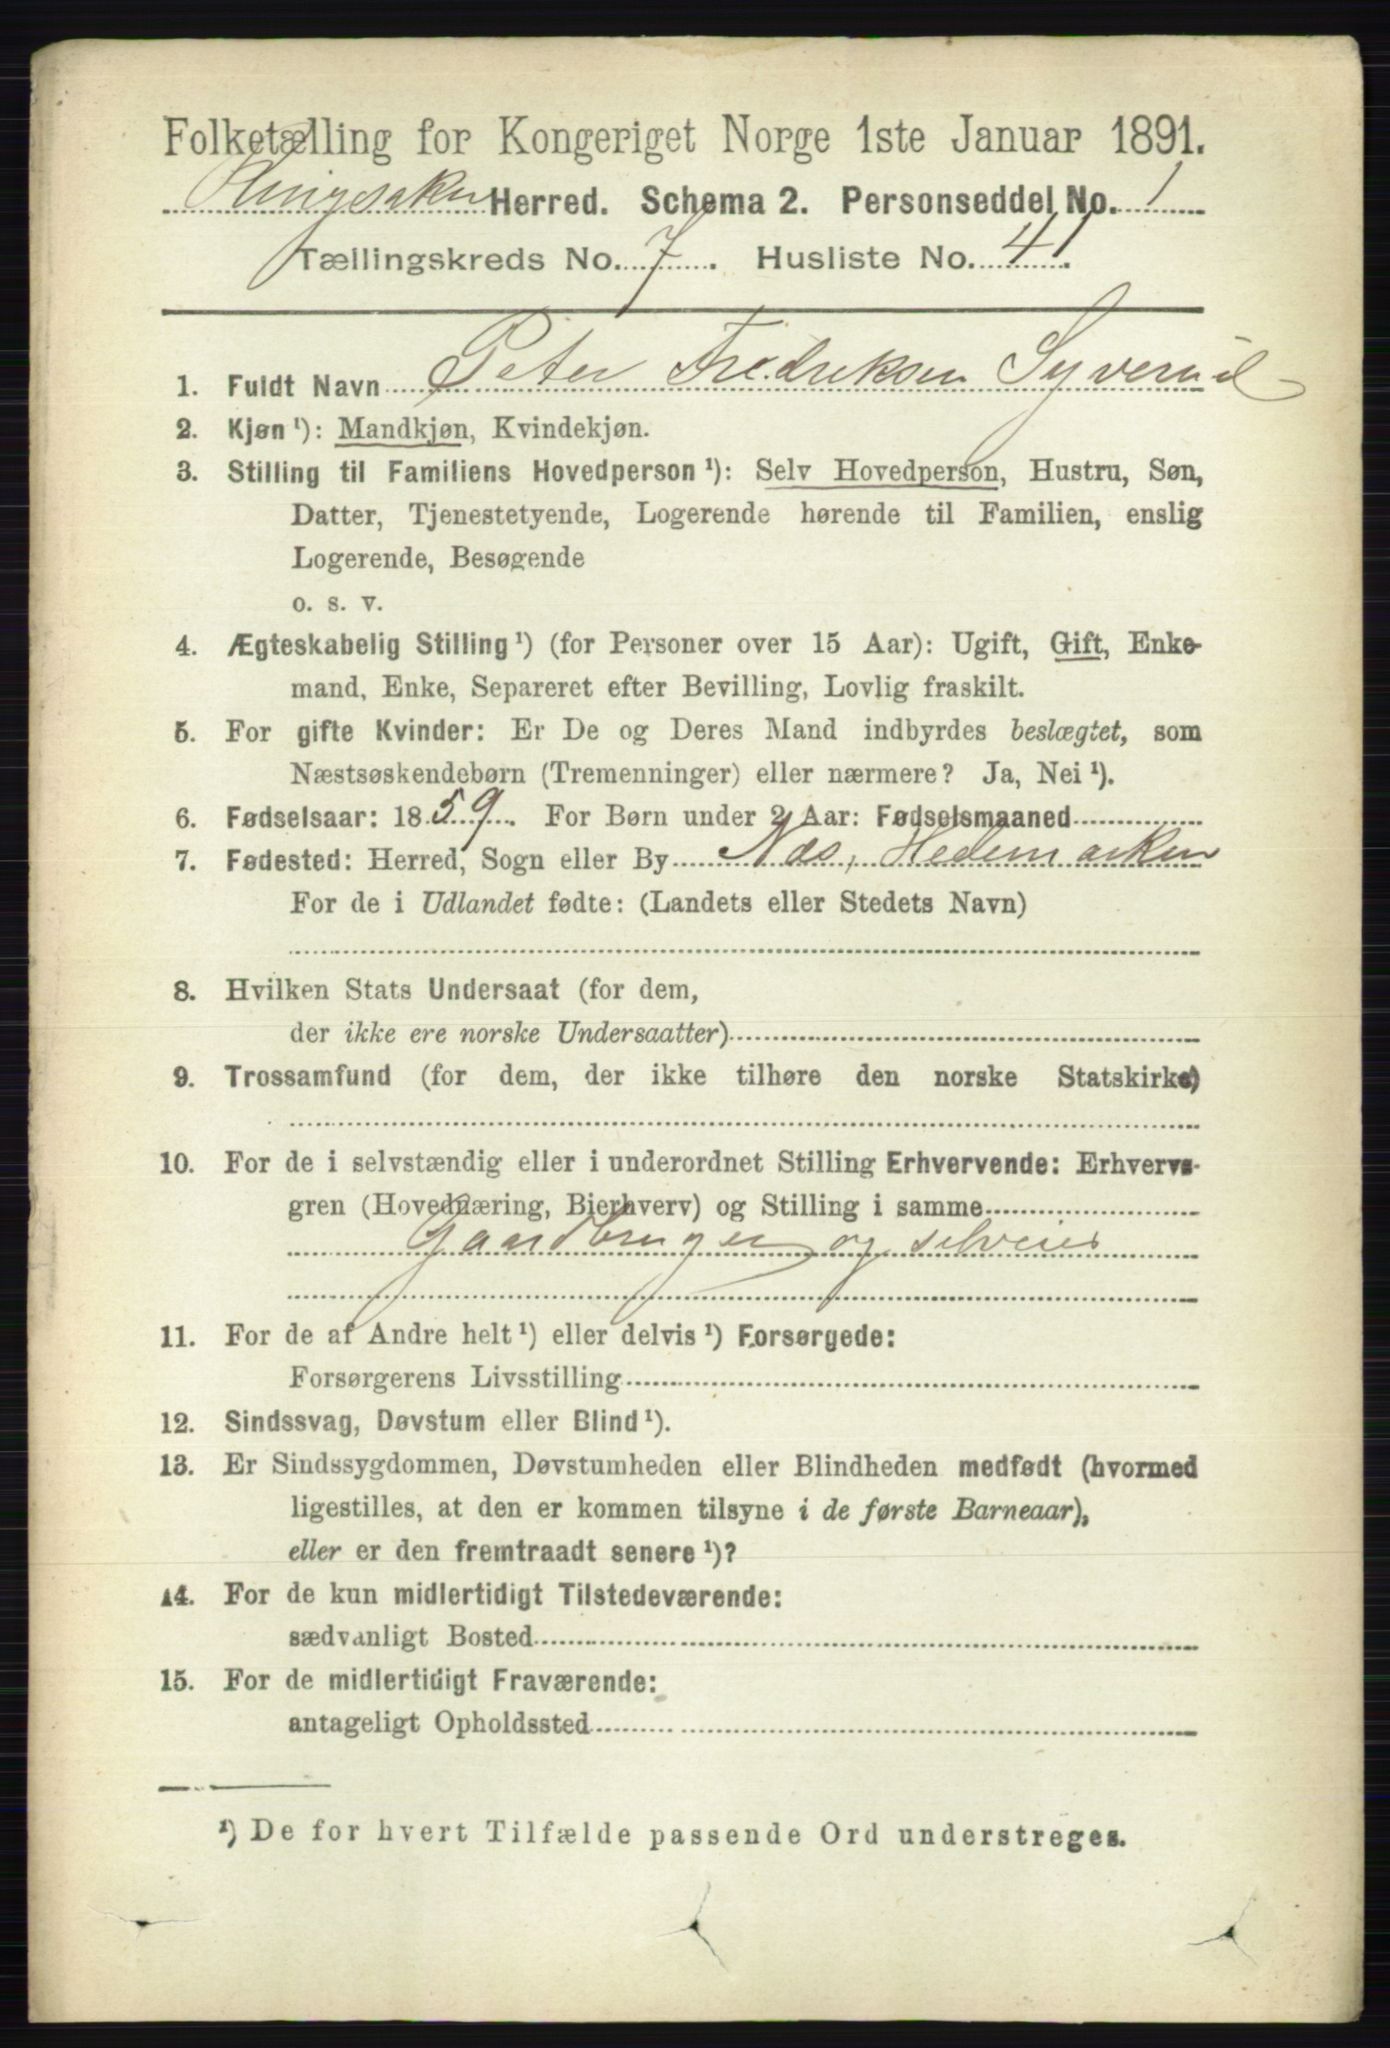 Folketælling for Kongeriget Norge 1ste Januar 1891.
Ringsaker Herred. Schema 2. Personseddel No. 1
Tællingskreds No. 7. Husliste No. 41.
1. Fuldt Navn Peter Fredriksen Syverud
2. Kjøn ¹): Mandkjøn, Kvindekjøn.
3. Stilling til Familiens Hovedperson ¹): Selv Hovedperson, Hustru, Søn,
Datter, Tjenestetyende, Logerende hørende til Familien, enslig
Logerende, Besøgende
o. s. v.
4. Ægteskabelig Stilling ¹) (for Personer over 15 Aar): Ugift, Gift, Enke-
mand, Enke, Separeret efter Bevilling, Lovlig fraskilt.
5. For gifte Kvinder: Er De og Deres Mand indbyrdes beslægtet, som
Næstsøskendebørn (Tremenninger) eller nærmere? Ja, Nei ¹).
6. Fødselsaar: 1859. For Børn under 2 Aar: Fødselsmaaned
7. Fødested: Herred, Sogn eller By Næs, Hedemarken
For de i Udlandet fødte: (Landets eller Stedets Navn)
8. Hvilken Stats Undersaat (for dem,
der ikke ere norske Undersaatter)
9. Trossamfund (for dem, der ikke tilhøre den norske Statskirke)
10. For de i selvstændig eller i underordnet Stilling Erhvervende: Erhvervs-
gren (Hovednæring, Bierhverv) og Stilling i samme
Gaardbruger og selveier
11. For de af Andre helt ¹) eller delvis ¹) Forsørgede:
Forsørgerens Livsstilling
12. Sindssvag, Døvstum eller Blind ¹).
13. Er Sindssygdommen, Døvstumheden eller Blindheden medfødt (hvormed
ligestilles, at den er kommen tilsyne i de første Barneaar),
eller er den fremtraadt senere ¹)?
14. For de kun midlertidigt Tilstedeværende:
sædvanligt Bosted
15. For de midlertidigt Fraværende:
antageligt Opholdssted
¹) De for hvert Tilfælde passende Ord understreges.